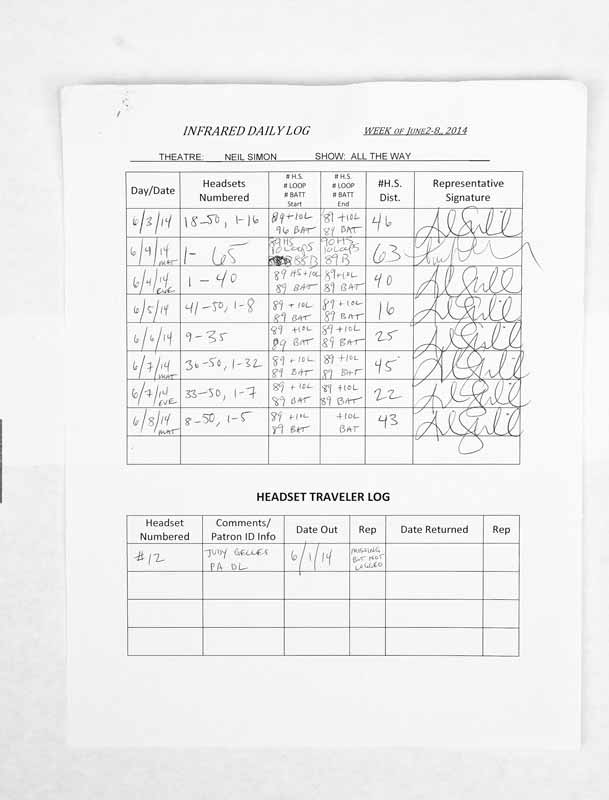 INFRARED DAILY LOG WEEK OF JUNE2-8,, 2014
THEATRE: NEIL SIMON SHOW: ALL THE WAY
Day/Date
Headsets
Numbered
# H.S.
# LOOP
# BATT
Start
# H.S.
# LOOP
# BATT
End
#H.S.
Dist.
Representative
Signature
6/3/14 18-50, 1-16 89+10L 89 +10L 46
96 BAT 89 BAT
6/4/14 MAT 1- 65 89 HS 90 HS 63
10 Loops 10 Loops
88 B 89 B
6/4/14 EVE 1-40 89 HS+10L 89+10L 40
89 BAT 89 BAT
6/5/14 41-50, 1-8 89 + 10L 89 + 10L 16
89 BAT 89 BAT
6/6/14 9-35 89 +10L 89 +10L 25
89 BAT 89 BAT
6/7/14 MAT 36-50, 1-32 89 +10L 89 +10L 45
89 BAT 89 BAT
6/7/14 EVE 33-50, 1-7 89 +10L 89 +10L 22
89 BAT 89 BAT
6/8/14 MAT 8-50, 1-5 89 +10L +10L 43
89 BAT BAT
HEADSET TRAVELER LOG
Headset
Numbered
Comments/
Patron ID Info
Date Out
Rep
Date Returned
Rep
#12 JUDY GELLES 6/1/14 MISSING
PA DL BUT NOT
LOGGED